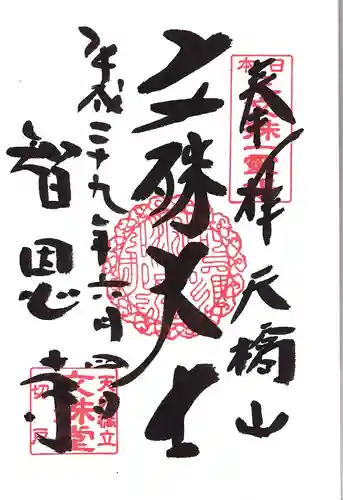 奉拝 天橋山
文殊大士
平成二十九年六月四日
智恩寺
日本三文殊一霊場
天之橋立
文殊堂
切戸